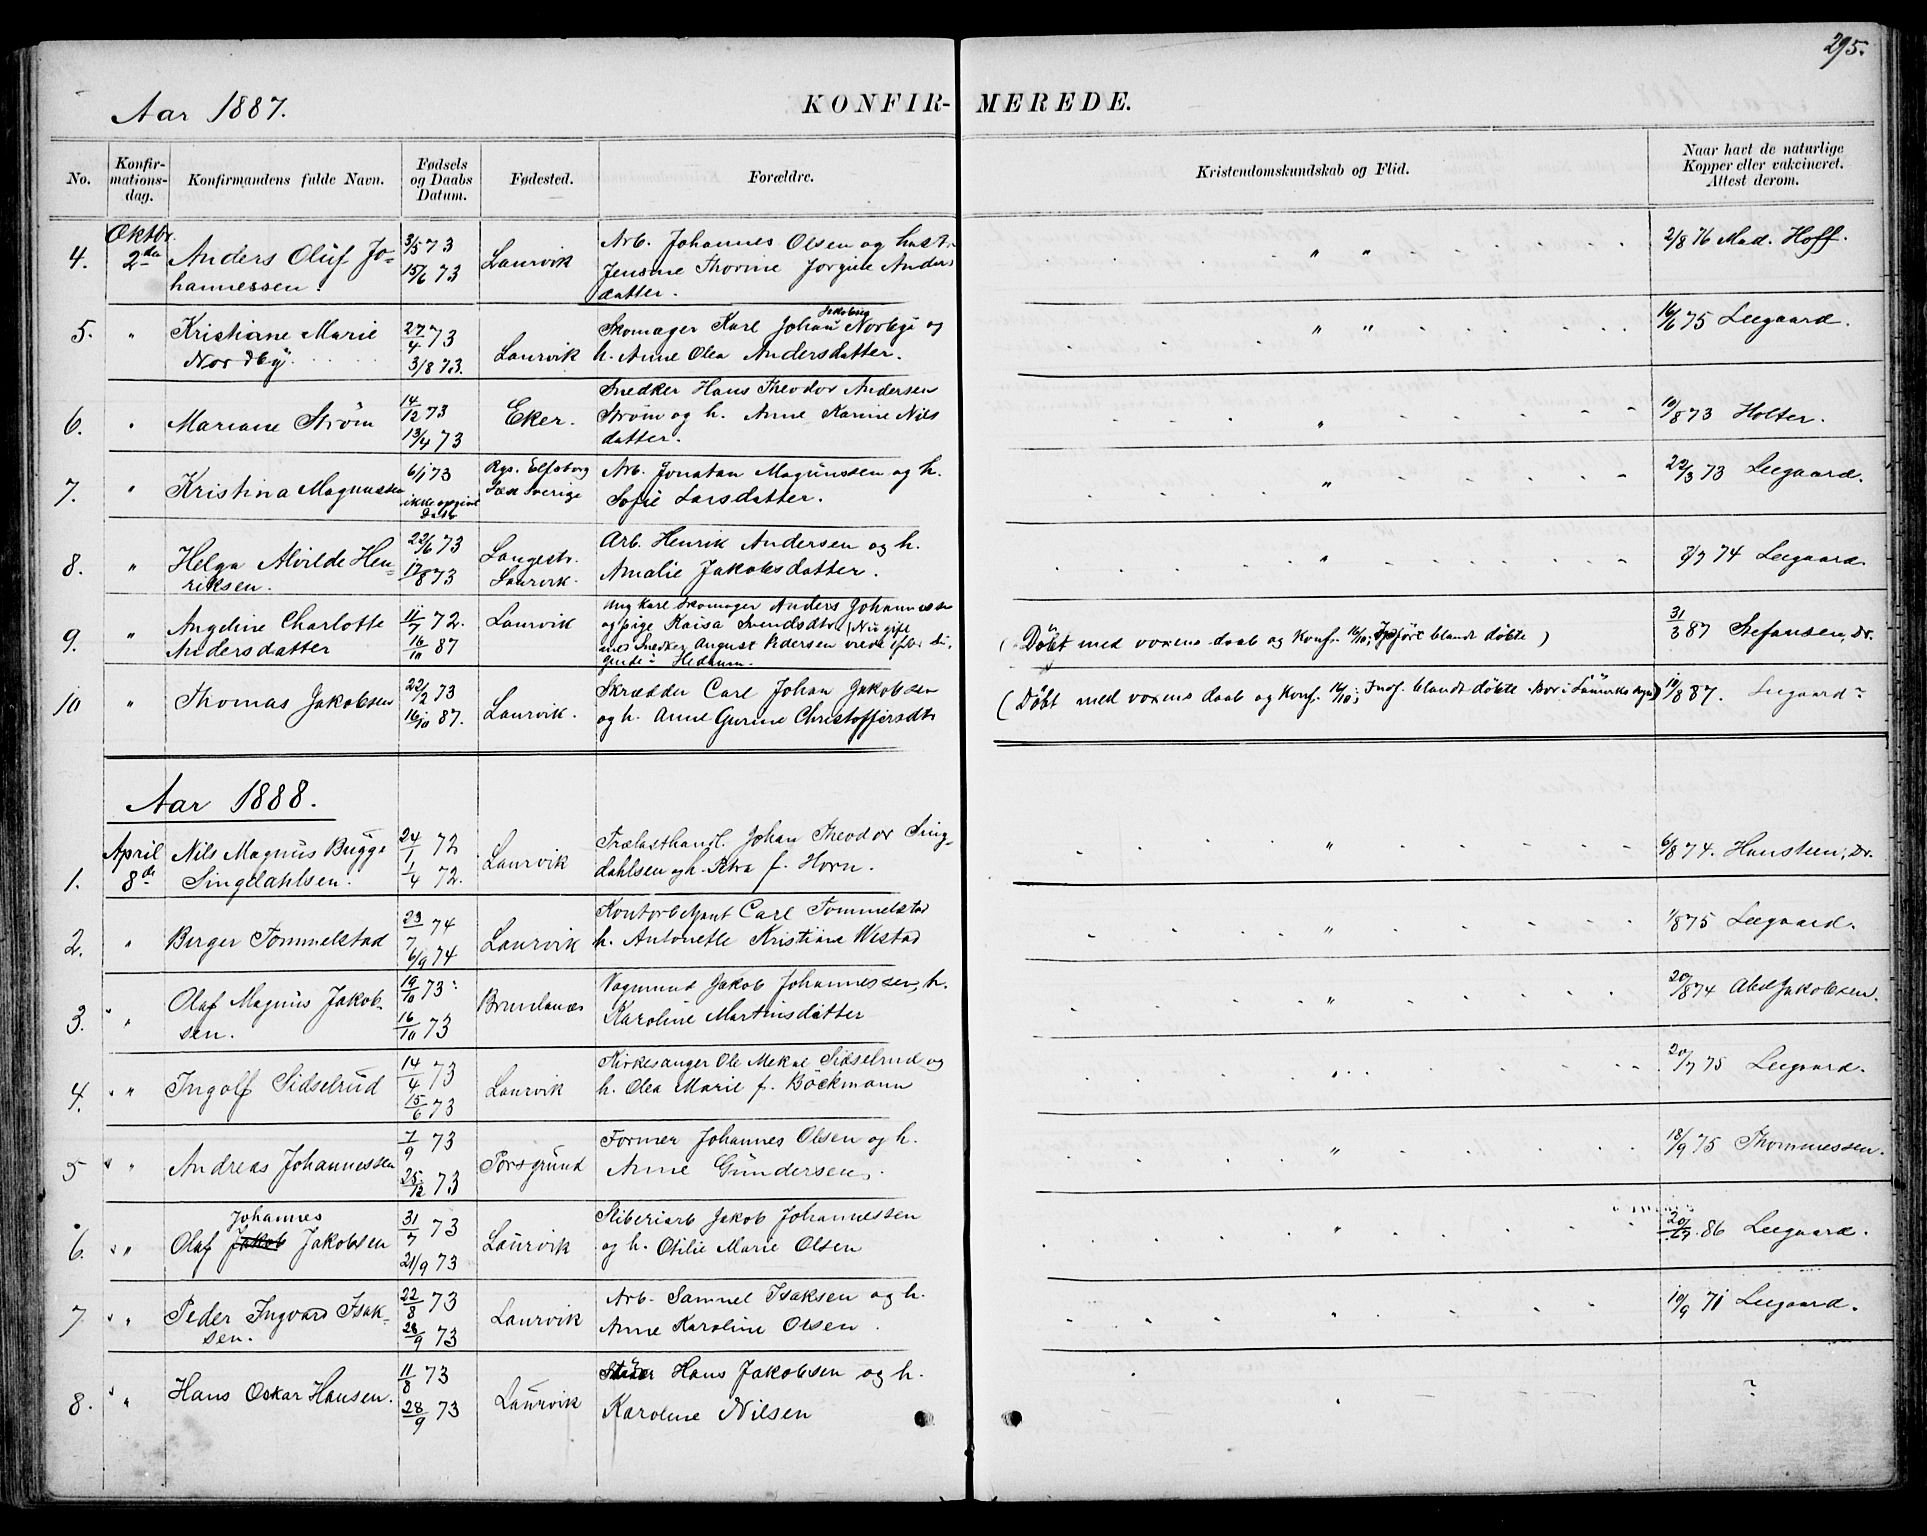 295.
Aar 1887.
KONFIR- MEREDE.
No. Konfirmationsdag. Konfirmandens fulde Navn. Fødsels og Daabs Datum. Fødested. Forældre. Kristendomskundskab og Flid. Naar havt de naturlige Kopper eller vakcineret. Attest derom.
Oktbr.
4. 2den Anders Oluf Jo- 3/5 73 Laurvik Arb. Johannes Olsen og hustr. " " 2/8 76 Mad. Hoff.
hannessen. 15/6 73 Jensine Thorine Jørgine Anders
datter.
5. " Kristiane Marie 27/4 73 Laurvik Skomager Karl Johan Jakobsen Norbye og " " 16/6 75 Leegaard.
Nordby. 3/8 73. h. Anne Olea Andersdatter.
6. " Mariane Strøm 14/12 73 Eker. Snedker Hans Theodor Andersen " 10/8 73 Holter.
13/4 73 Strøm og h. Anne Karine Nils
datter.
7. " Kristina Magnussen 6/1 73 Elfsborg Arb. Jonatan Magnussen og h. " 22/3 73 Leegaard.
ikke opgivet Daab Sverige Sofie Larsdatter.
8. " Helga Alvilde Hen- 22/6 73 Langestr. Arb. Henrik Andersen og h. " 8/7 74 Leegaard.
riksen. 17/8 73 Laurvik. Amalie Jakobsdatter.
9. " Angeline Charlotte 11/7 72. Laurvik Ung Karl Skomager Anders Johannessen (Døbt med voxens daab og Konf. 16/10; Indført blandt døbte) 31/3 87 Stefansen, Dr.
Andersdatter 16/10 87 og pige Kaisa Svendsdtr. (Nu gift
med Snedker August Pedersen
Hedrum.
10 " Thomas Jakobsen 22/2 73 Laurvik. Skrædder Carl Johan Jakobsen (Døbt med voxens daab og Konf. 16/10; Indf. blandt døbte. Bor i Laurviks 10/8 87. Leegaard
16/10 87. og h. Anne Gurine Christoffersdtr
Aar 1888.
April
1. 8de Nils Magnus Bugge 24/1 72 Laurvik Trælasthandl. Johan Theodor Sing- " 6/8 74. Hansteen, Dr.
Singdahlsen. 1/4 72. dahlsen og h. Petra f. Horn.
2. " Birger Tommelstad 23/7 74 Laurvik Kontorbetjent Carl Tommelstad " 1/8 75 Leegaard.
6/9 74 h. Antonette Kristiane Westad
3. " Olaf Magnus Jakob- 19/10 73 Brunlanæs Vognmand Jakob Johannessen, h. " 20/8 74 Abel Jakobsen.
sen. 16/10 73 Karoline Martinsdatter
4. " Ingolf Sidselrud 14/4 73 Laurvik Kirkesanger Ole Mekal Sidselrud og " 20/7 75 Leegaard.
15/6 73 h. Olea Marie f. Böckmann
5 " Andreas Johannessen 7/9 73 Porsgrund Former Johannes Olsen og h. " 18/9 75 Thommessen.
25/12 73 Anne Gundersen.
6. " Olaf Jakob Johannes Jakobsen 31/7 73 Laurvik Stiberiarb Jakob Johannessen " 20/7 86 Leegaard.
21/9 73 og h. Otilie Marie Olsen
7. " Peder Ingvard Isak- 22/8 73 Laurvik Arb. Samuel Isaksen og h. " 10/9 71 Leegaard.
sen. 28/9 73 Anne Karoline Olsen.
8. " Hans Oskar Hansen. 11/8 73 Laurvik Hans Jakobsen og h. ?
28/9 73 Karoline Nilsen